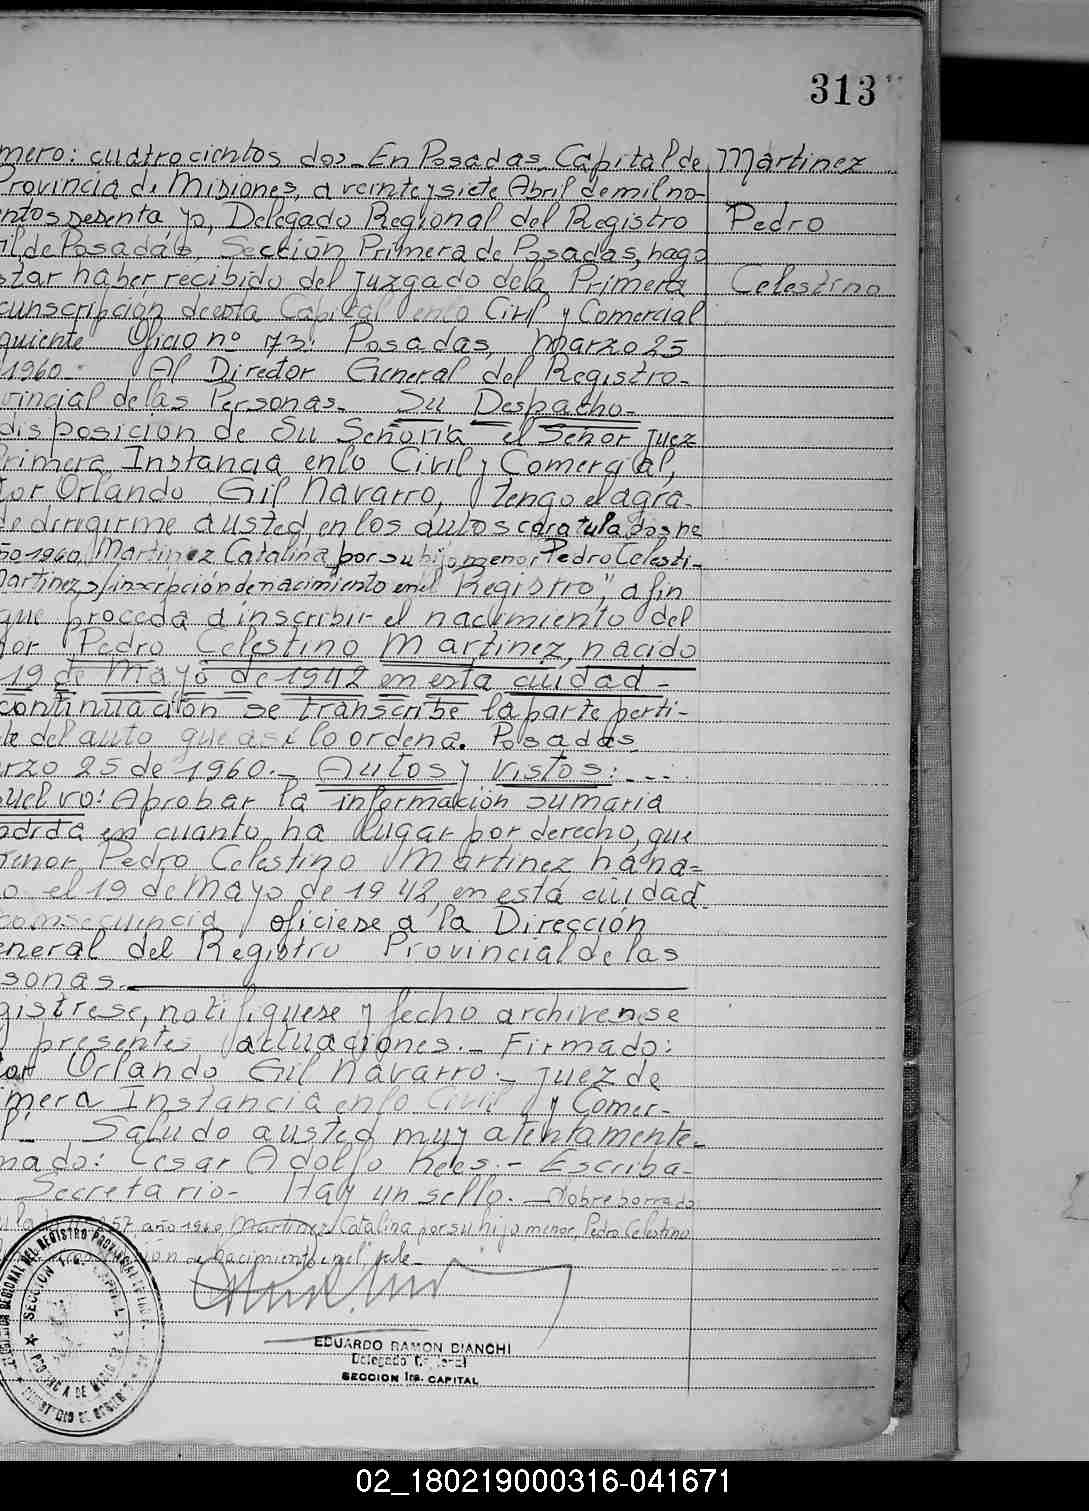 313
mero: cuatrocientos dos_ En Posadas, Capital de Martinez
Provincia de Misiones, a veinte y siete Abril de mil no-
entos sesenta yo, Delegado Regional del Registro Pedro
il de Posadas, Sección Primera de Posadas, hago
star haber recibido del juzgado dela Primera Celestino
cunscripción de esta Capital en lo Civil y Comercial
guiente Oficio nº 73: Posadas, marzo 25
1960.- Al Director General del Registro-
vincial de las Personas- Su Despacho-
disposición de Su Señoría el Señor juez
Primera Instancia en lo Civil y Comercial,
tor Orlando Gil Navarro, tengo el agra-
de dirigirme a usted, en los autos caratulados ne
ño 1960, Martinez Catalina por su hijo menor Pedro Celesti-
Martinez s/inscripción de nacimiento en el Registro", a fin
que proceda a inscribir el nacimiento del
or Pedro Celestino Martinez, nacido
19 de Mayo de 1942 en esta ciudad-
continuación se transcribe la parte perti-
te del auto que así lo ordena. Posadas
rzo 25 de 1960.- Autos y Vistos:....
suelvo: Aprobar la información sumaria
ndida en cuanto ha lugar por derecho, que
menor Pedro Celestino Martinez ha na-
o el 19 de Mayo de 1942, en esta ciudad.
consecuencia, ofíciese a la Dirección
eneral del Registro Provincial de las
sonas.
gistrese, notifíquese y fecho archivense
presentes actuaciones.- Firmado:
tor Orlando Gil Navarro.- juez de
imera Instancia en lo Civil y Comer-
l- Saludo a usted muy atentamente-
mado: Cesar Adolfo Rees.- Escriba-
Secretario- Hay un sello.- Sobre borrado
57 año 1960, Martinez Catalina por su hijo menor, Pedro Celestino
nacimiento en el", vale_
EDUARDO RAMON BIANCHI
Delegado
SECCION 1ra. CAPITAL
02_180219000316-041671